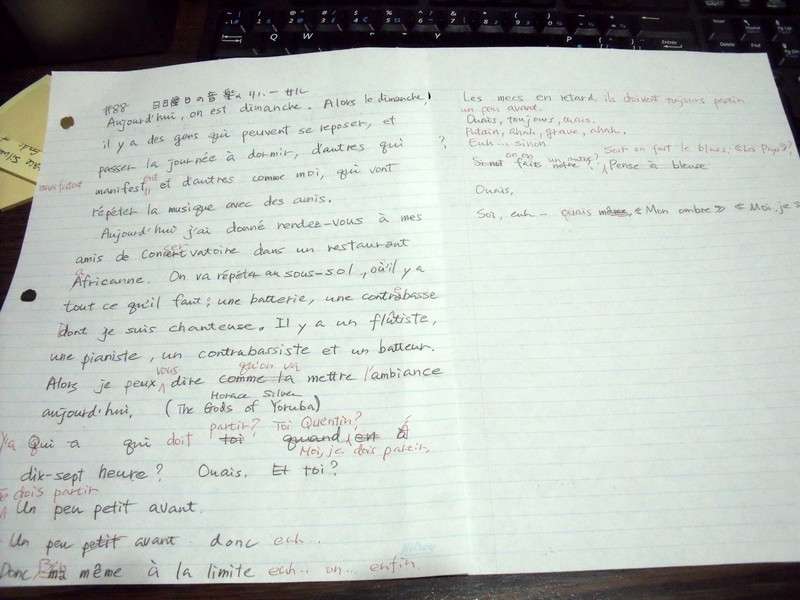 #88 日曜日の音楽 リハーサル
Aujourd'hui, on est dimanche. Alors le dimanche,
il y a des gens qui peuvent se reposer, et
passer la journée à dormir, d'autres qui ?
manifestent
manifestent et d'autres comme moi, qui vont
répéter la musique avec des amis.
Aujourd'hui j'ai donné rendez-vous à mes
amis de Conservatoire dans un restaurant
Africanne. On va répéter au sous-sol, où il y a
tout ce qu'il faut : une batterie, une contrebasse
dont je suis chanteuse. Il y a un flûtiste,
une pianiste, un contrabassiste et un batteur.
vous qu'on va
Alors je peux dire comme la mettre l'ambiance
Horace Silver
aujourd'hui, (The Gods of Yoruba)
partir? Toi Quentin?
Y'a Qui a qui doit toi quand en à
Moi, je dois partir.
dix-sept heure? Ouais. Et toi?
Je dois partir
Un peu petit avant.
Un peu petit avant donc euh..
Donc même à la limite euh... on... enfin
Les mecs en retard ils doivent toujours partir
un peu avant.
Ouais, toujours, ouais.
Putain, ahah, grave, ahah.
Euh... sinon
Soit on fait le blues, «Les Psys»?,
on en un autre?
Si not faits notre. Pense à bleuse
Ouais,
Soi, euh... ouais même, «Mon ombre» «Moi, je s